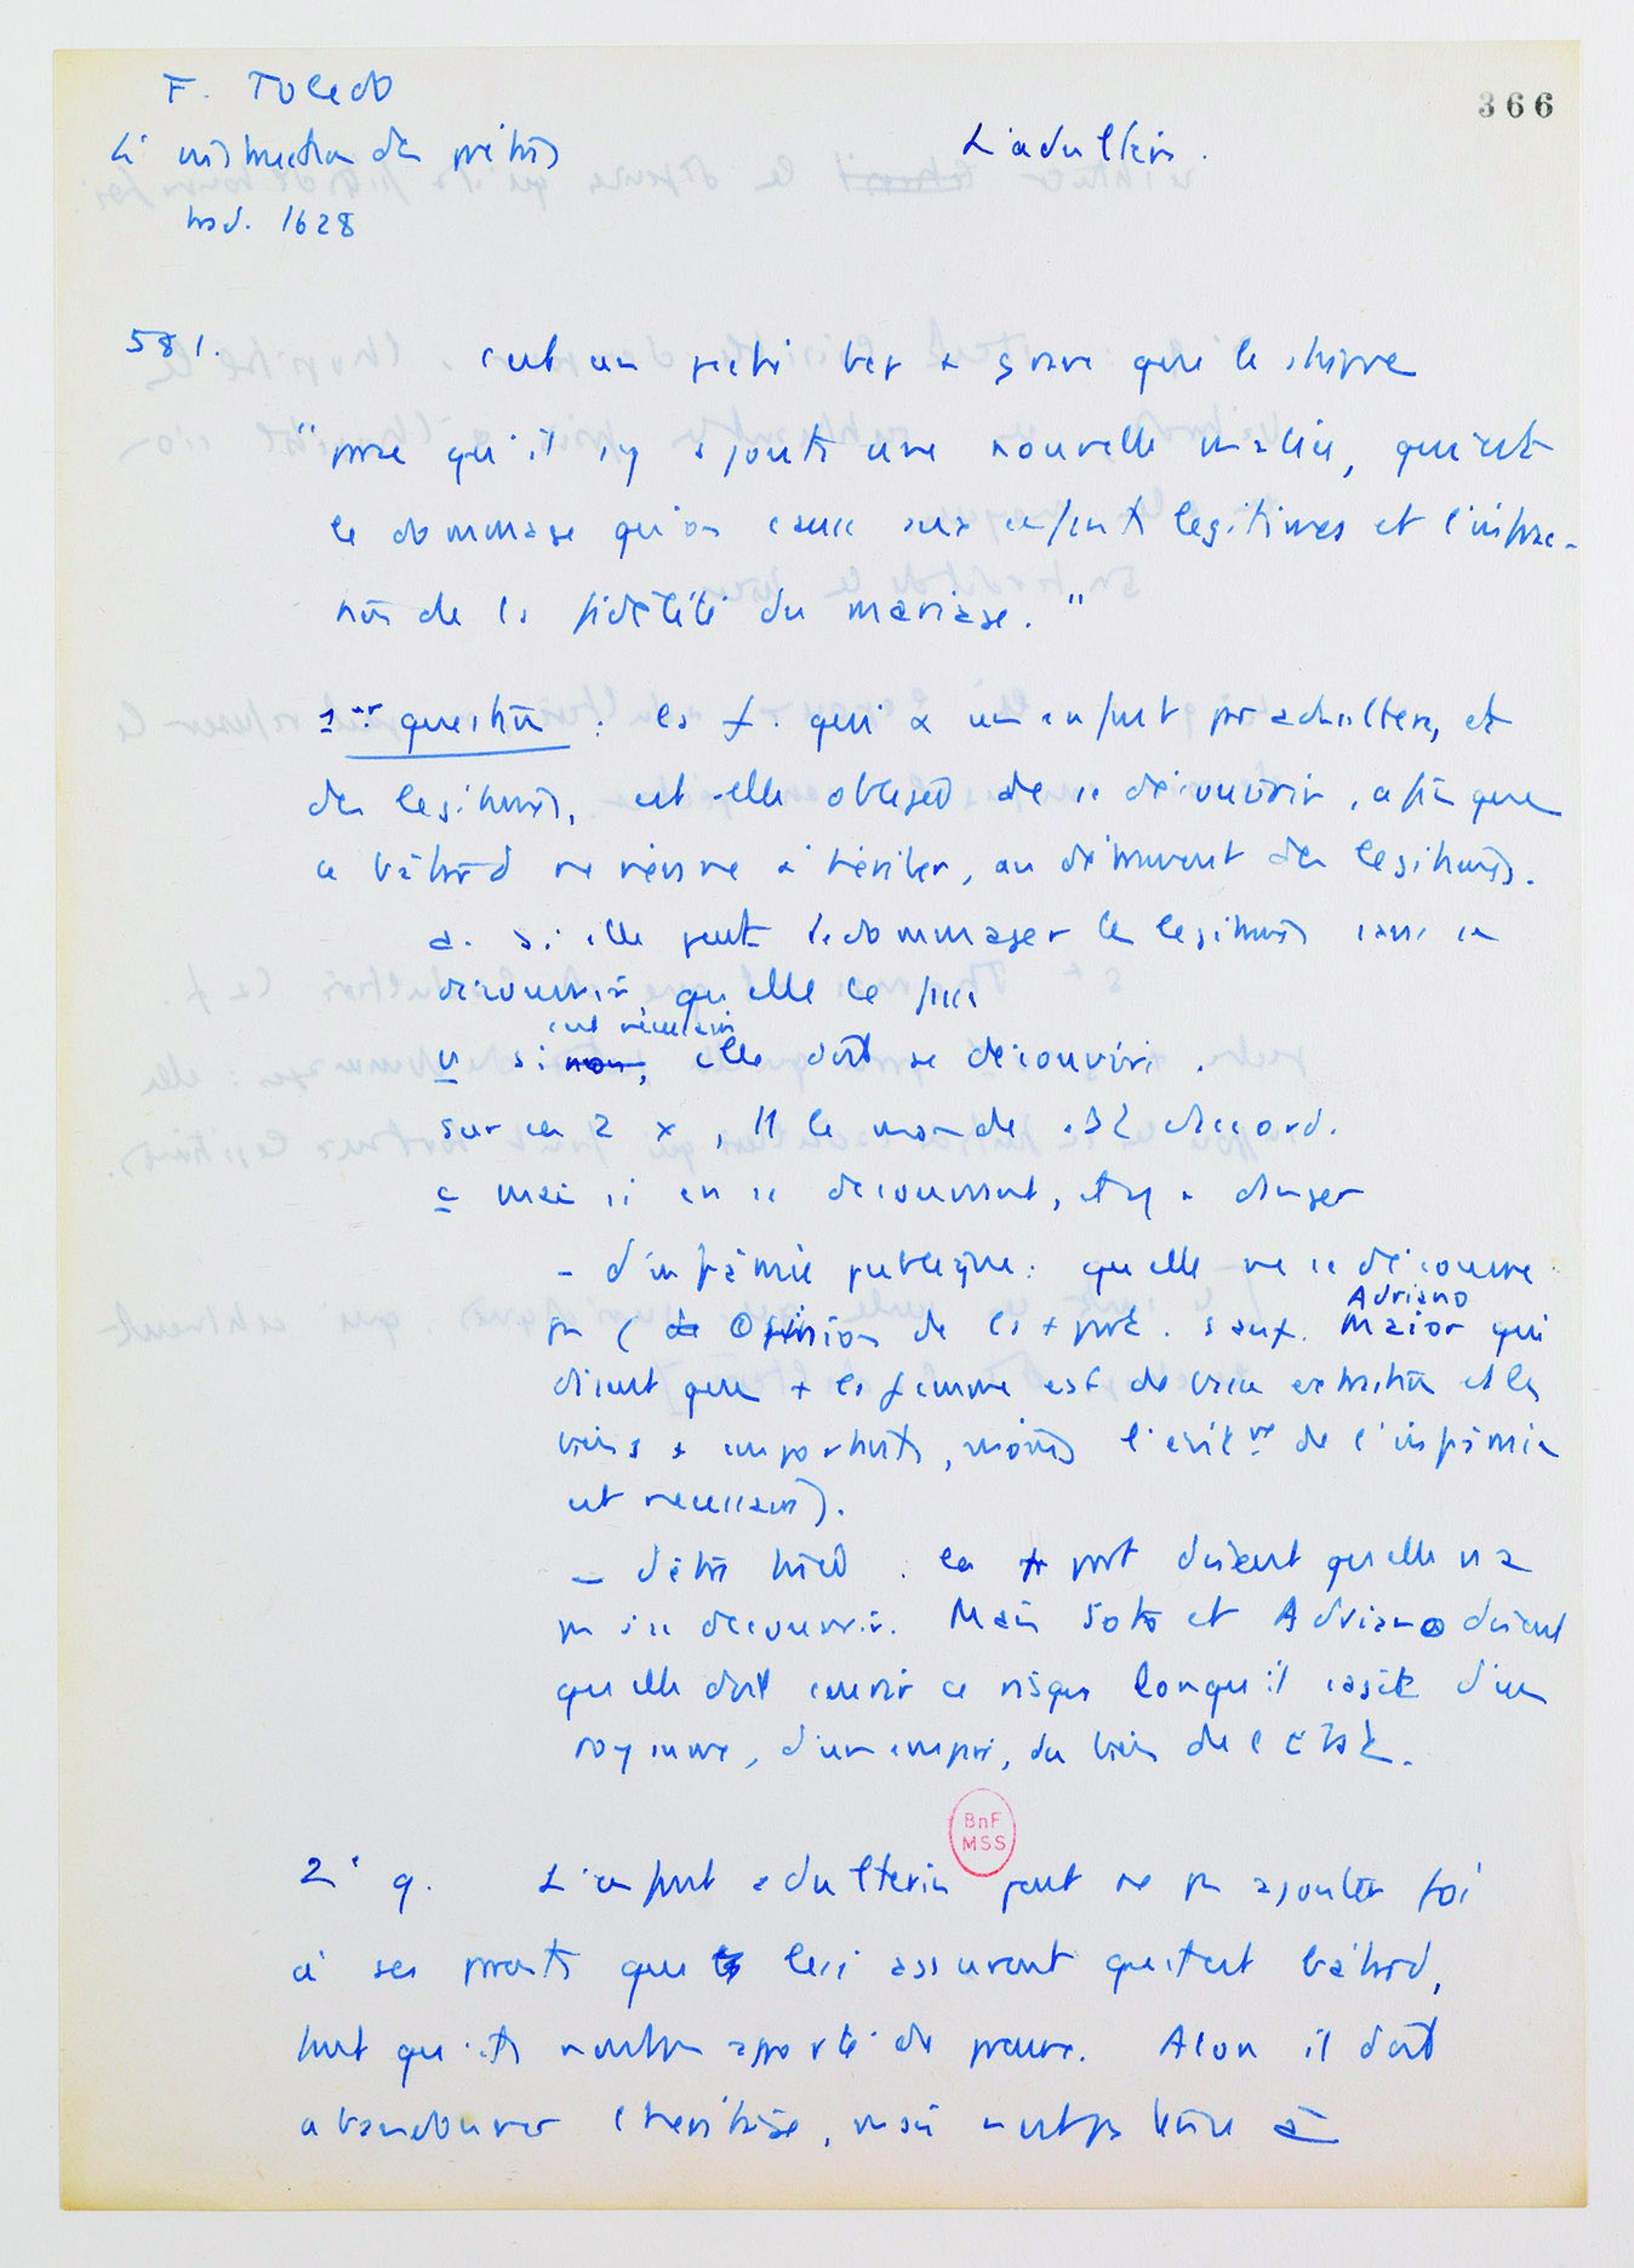 F. Toledo
366
L'instruction des prêtres
L'adultère.
trad. 1628
581. c'est un péché bcp + grave que le stupre
"parce qu'il s'y ajoute une nouvelle malice, qui est
le dommage qu'on cause aux enfants legitimes et l'infrac-
tion de la fidélité du mariage."
1ère question : la f. qui a un enfant par adultère, et
des legitimes, est-elle obligée de se découvrir, afin que
ce bâtard ne vienne à hériter, au détriment des legitimes.
a. si elle peut dédommager les legitimes sans se
découvrir, qu'elle le fasse
est nécessaire
b si non, elle doit se découvrir.
sur ces 2 x, tt le monde est d'accord.
c mais si en se découvrant, il y a danger
- d'infâmie publique : qu'elle ne se découvre
Adriano
pas (de Opinion de la + part. sauf. Maior qui
disent que + la femme est de basse extraction et les
biens + importants, moins l'évitmt de l'infâmie
est nécessaire).
- d'être tuée : la + part disent qu'elle n'a
pas à se découvrir. Mais Soto et Adriano disent
qu'elle doit courir ce risque lorsqu'il s'agit d'un
royaume, d'un empire, du bien de l'Etat.
BnF
MSS
2e q. L'enfant adulterin peut ne pas ajouter foi
à ses parents qui lui assurent qu'il est bâtard,
tant qu'ils n'ont pas apporté de preuve. Alors il doit
abandonner l'héritage, mais n'est pas tenu à